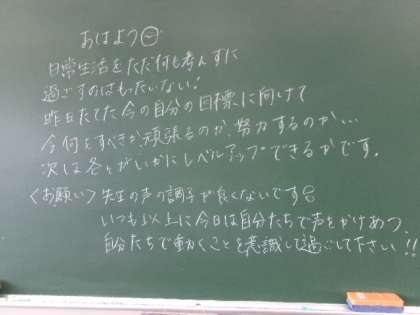 おはよう
日常生活をただ何も考えずに
過ごすのはもったいない!
昨日たてた今の自分の目標に向けて
今何をすべきか頑張るのか、努力するのか…
次は各々がいかにレベルアップできるかです。
〈お願い〉先生の声の調子が良くないです
いつも以上に今日は自分たちで声をかけあつ、
自分たちで動くことを意識して過ごして下さい!!